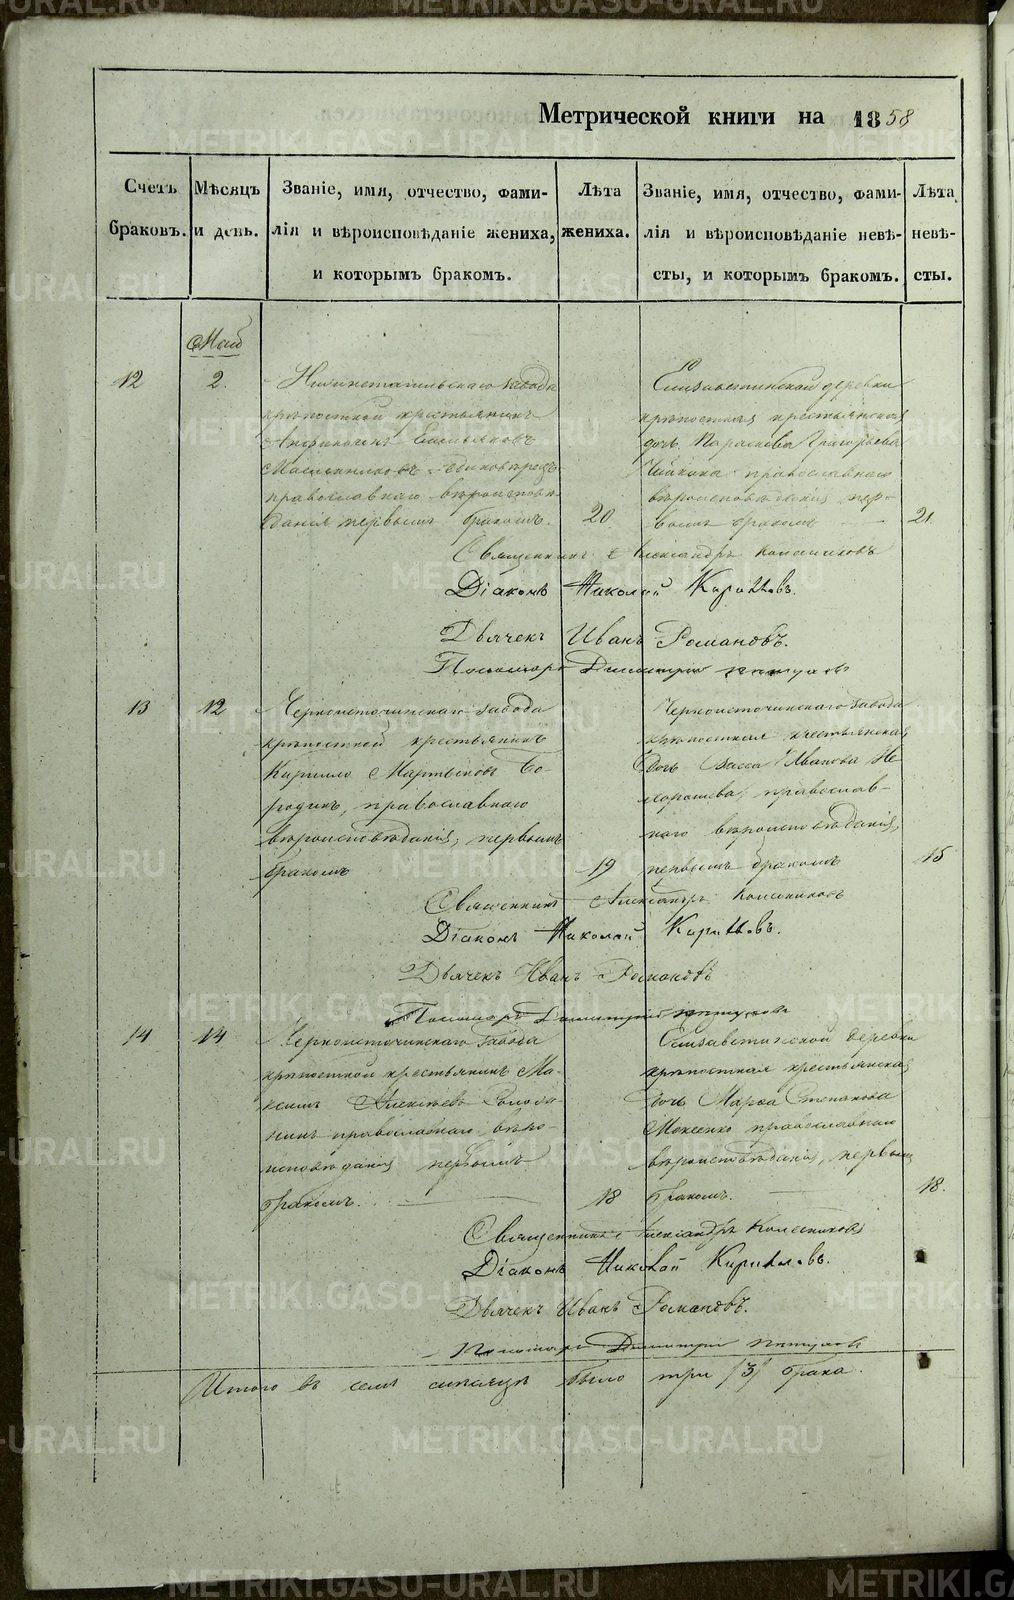 METRIKI.GASO-URAL.RU
Метрической книги на 1858
Счетъ браковъ.
Мѣсяцъ и день.
Званіе, имя, отчество, фами-
лія и вѣроисповѣданіе жениха,
и которымъ бракомъ.
Лѣта жениха.
Званіе, имя, отчество, фами-
лія и вѣроисповѣданіе невѣ-
сты, и которымъ бракомъ.
Лѣта невѣ-
сты.
Май
12
2.
завода
крѣпостной крестьянинъ
православнаго вѣроисповѣ-
данія первымъ бракомъ.
20
Елизаветинской деревни
крѣпостная крестьянская
дочь Парасковья Григорьева
православнаго
вѣроисповѣданія, пер-
вымъ бракомъ
21.
Священникъ Александръ Колесниковъ
Діаконъ Николай Кирилловъ.
Дьячекъ Иванъ Романовъ.
Пономарь Димитрій
13
12
Черноисточинскаго завода
крѣпостной крестьянинъ
Кирилло Мартыновъ Бо-
родинъ, православнаго
вѣроисповѣданія, первымъ
бракомъ
19
Черноисточинскаго завода
крѣпостная крестьянская
дочь Васса Иванова Не
православ-
наго вѣроисповѣданія,
первымъ бракомъ
15
Священникъ Александръ Колесниковъ
Діаконъ Николай Кирилловъ.
Дьячекъ Иванъ Романовъ
Пономарь Димитрій
14
14
Черноисточинскаго завода
крѣпостной крестьянинъ Ма-
ксимъ Алексѣевъ
православнаго вѣро-
исповѣданія первымъ
бракомъ.
18
Елизаветинской деревни
крѣпостная крестьянская
дочь Марѳа Степанова
православнаго
вѣроисповѣданія, первымъ
бракомъ.
18.
Священникъ Александръ Колесниковъ
Діаконъ Николай Кирилловъ.
Дьячекъ Иванъ Романовъ.
Пономарь Димитрій
Итого въ семъ мѣсяцѣ было три /3/ брака.